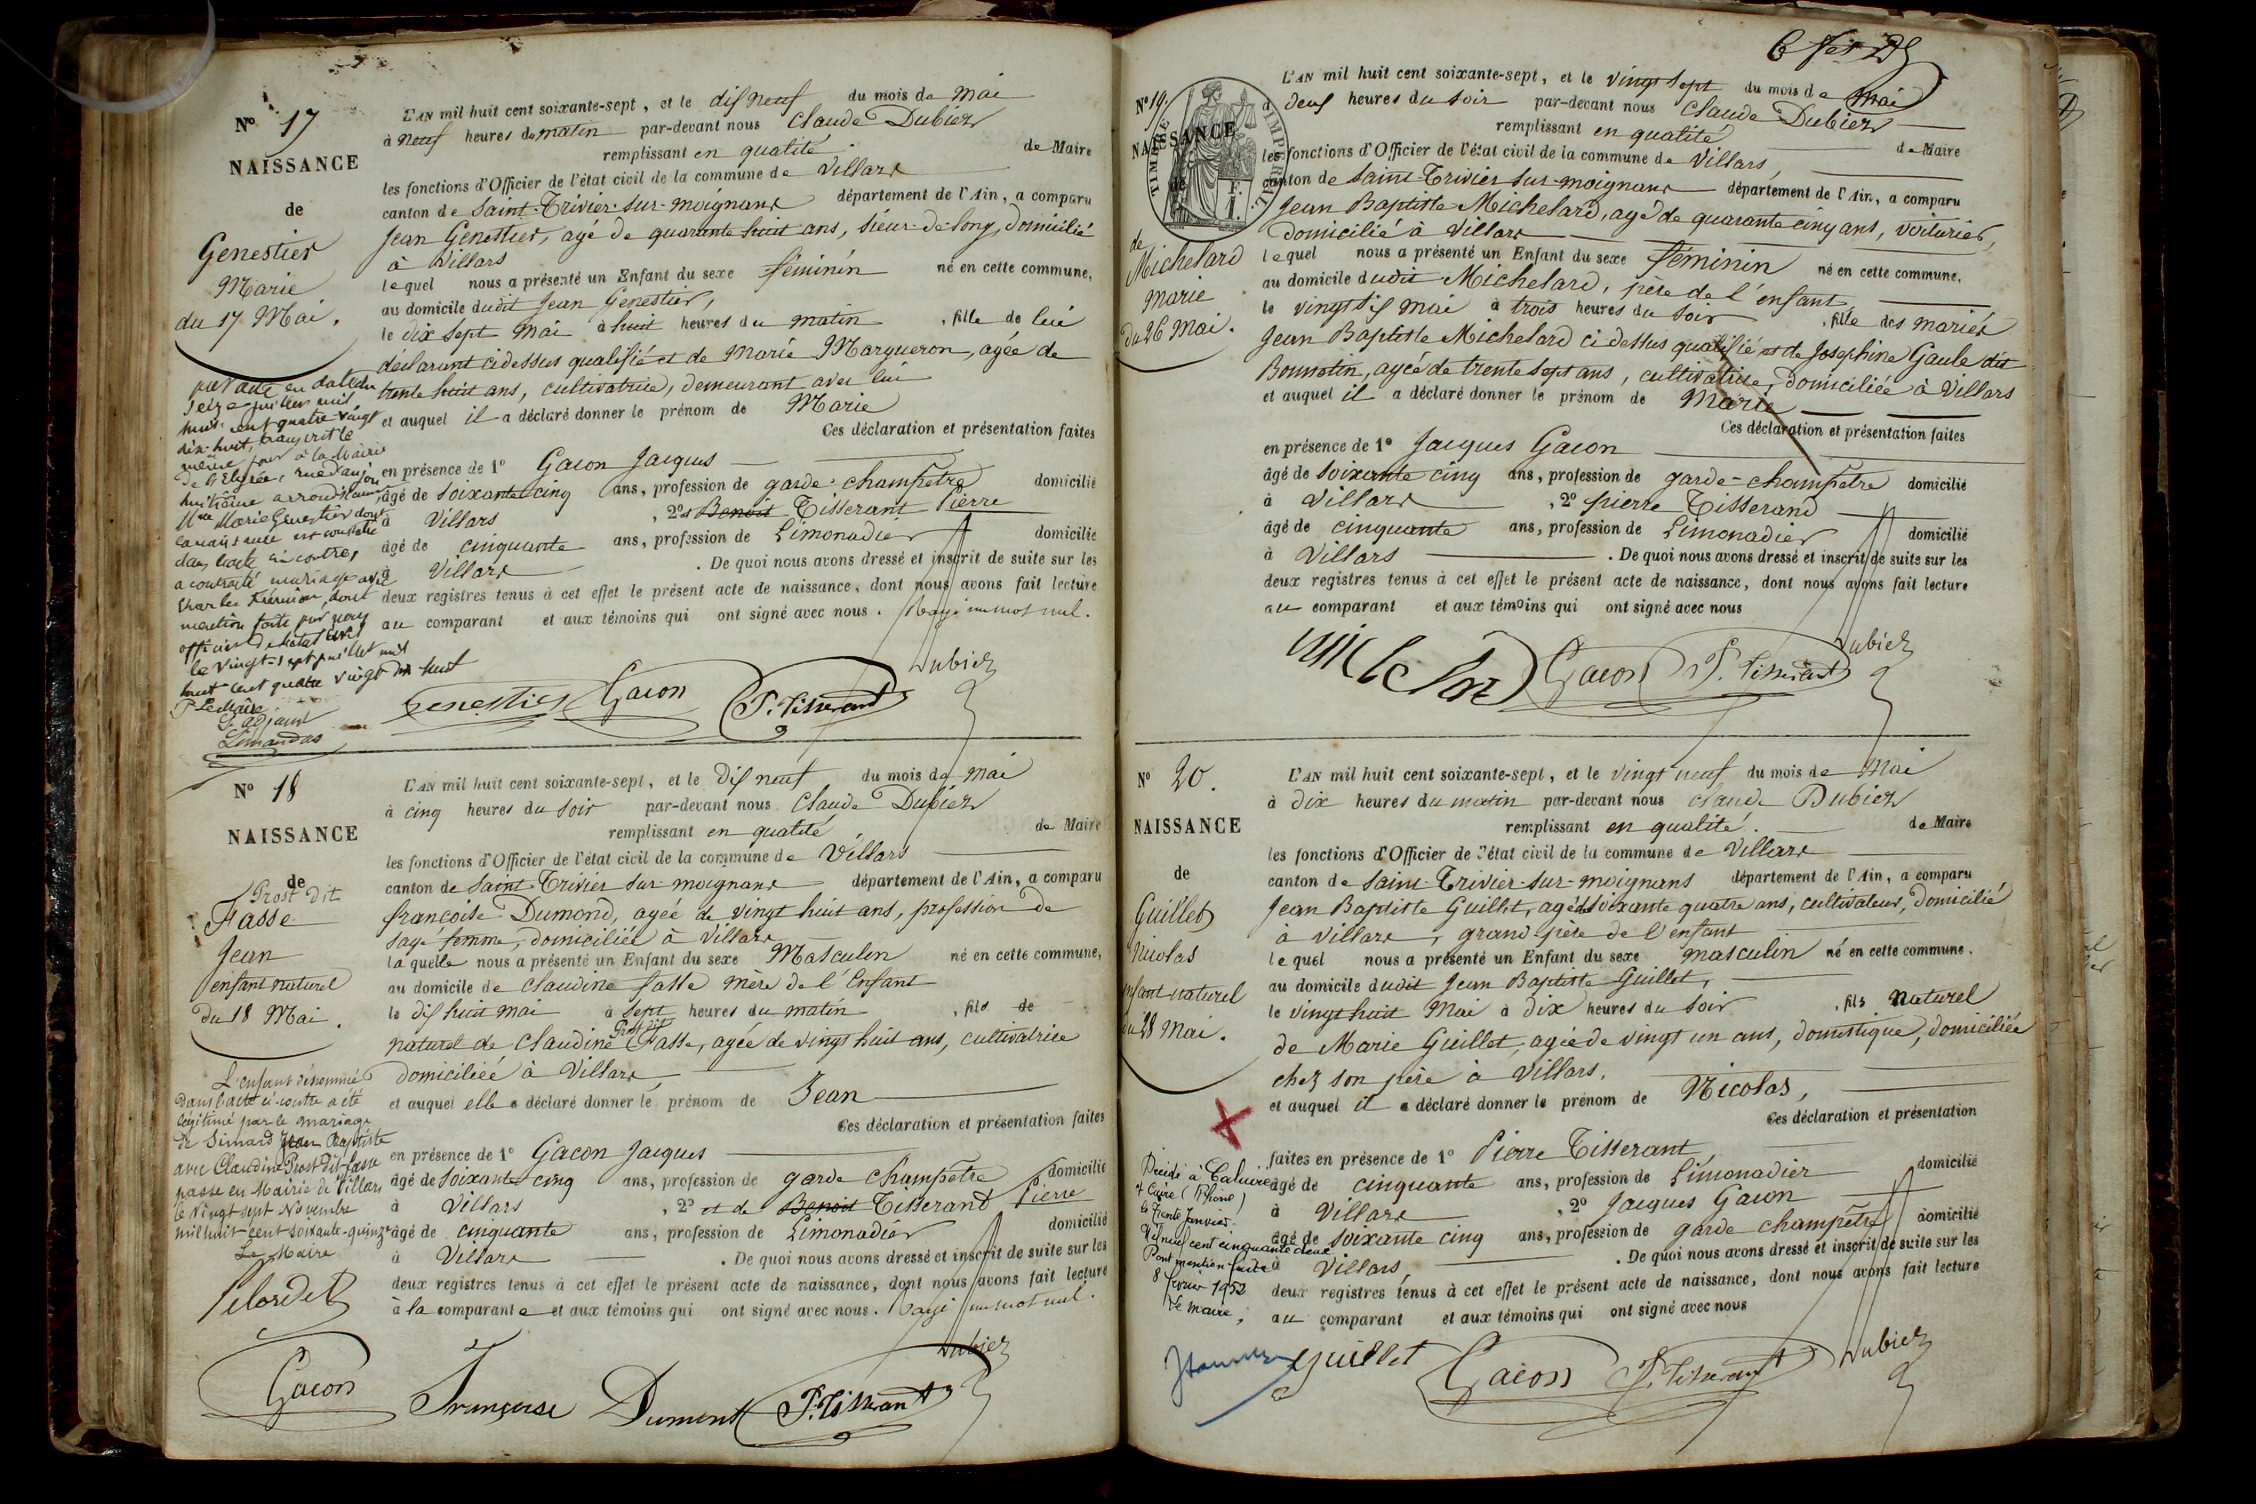 N° 17
NAISSANCE
de
Genestier
Marie
du 17 Mai.
L'AN mil huit cent soixante-sept, et le dix neuf du mois de Mai
à neuf heures du matin par-devant nous Claude Dubiez
remplissant en qualité de Maire
les fonctions d'Officier de l'état civil de la commune de Villars
canton de Saint-Trivier-sur-moignans département de l'Ain, a comparu
Jean Genestier, agé de quarante huit ans, sieur-de-long, domicilié
à Villars
lequel nous a présenté un Enfant du sexe féminin né en cette commune,
au domicile dudit Jean Genestier,
le dix sept Mai à huit heures du matin, fille de lui
déclarant cidessus qualifié et de Marie Margueron, agée de
trente huit ans, cultivatrice, demeurant avec lui
et auquel il a déclaré donner le prénom de Marie
Ces déclaration et présentation faites
en présence de 1° Gacon Jacques
âgé de soixante cinq ans, profession de garde-champêtre domicilié
à Villars, 2° et Benoit Tisserant Pierre
âgé de cinquante ans, profession de Limonadier domicilié
à Villars. De quoi nous avons dressé et inscrit de suite sur les
deux registres tenus à cet effet le présent acte de naissance, dont nous avons fait lecture
au comparant et aux témoins qui ont signé avec nous. Rayé un mot nul.
par acte en date du
seize juillet mil
huit cent quatre-vingt
dix-huit, transcrit le
même jour à la Mairie
de l'Elysée, rue d'anjou
huitième arrondissement,
Marie Genestier dont
la naissance est constatée
dans l'acte ci-contre,
a contracté mariage avec
Charles, dont
mention faite par nous
officier de l'état civil
le vingt-sept juillet mil
huit cent quatre vingt dix huit
P. Le Maire
L'adjoint
Genestier Gacon P. Tisserant Dubiez
N° 18
NAISSANCE
de
Prost dit
Fasse
Jean
enfant naturel
du 18 Mai.
L'AN mil huit cent soixante-sept, et le dix neuf du mois de Mai
à cinq heures du soir par-devant nous Claude Dubiez
remplissant en qualité de Maire
les fonctions d'Officier de l'état civil de la commune de Villars
canton de Saint-Trivier-sur-moignans département de l'Ain, a comparu
françoise Dumond, agée de vingt huit ans, profession de
sage femme, domiciliée à Villars
laquelle nous a présenté un Enfant du sexe Masculin né en cette commune,
au domicile de claudine fasse mère de l'Enfant
le dix huit mai à sept heures du matin, fils de
Prost dit
naturel de claudine Fasse, agée de vingt huit ans, cultivatrice
domiciliée à Villars,
et auquel elle a déclaré donner le prénom de Jean
Ces déclaration et présentation faites
en présence de 1° Gacon Jacques
âgé de soixante cinq ans, profession de garde champêtre domicilié
à Villars, 2° et de Benoit Tisserant Pierre
âgé de cinquante ans, profession de Limonadier domicilié
à Villars. De quoi nous avons dressé et inscrit de suite sur les
deux registres tenus à cet effet le présent acte de naissance, dont nous avons fait lecture
à la comparante et aux témoins qui ont signé avec nous. Rayé un mot nul.
L'enfant dénommé
dans l'acte ci-contre a été
légitimé par le mariage
de Simard Jean Baptiste
avec Claudine Prost dit fasse
passé en Mairie de Villars
le vingt sept Novembre
mil huit-cent soixante-quinze
Le Maire
Gacon Françoise Dumont P. Tisserant Dubiez
N° 19.
NAISSANCE
de
TIMBRE IMPERIAL
de
Michelard
Marie
du 26 Mai.
L'AN mil huit cent soixante-sept, et le vingt sept du mois de Mai
à deux heures du soir par-devant nous Claude Dubiez
remplissant en qualité de Maire
les fonctions d'Officier de l'état civil de la commune de Villars,
canton de Saint-Trivier-sur-moignans département de l'Ain, a comparu
Jean Baptiste Michelard, agé de quarante cinq ans, voiturier,
domicilié à Villars
lequel nous a présenté un Enfant du sexe féminin né en cette commune,
au domicile dudit Michelard, père de l'enfant,
le vingt six mai à trois heures du soir, fille des mariés
Jean Baptiste Michelard ci dessus qualifié et de Josephine Gaule dit
Bonnotin, agée de trente sept ans, cultivatrice, domiciliée à Villars
et auquel il a déclaré donner le prénom de Marie
Ces déclaration et présentation faites
en présence de 1° Jacques Gacon
âgé de soixante cinq ans, profession de garde-champêtre domicilié
à Villars, 2° pierre Tisserand
âgé de cinquante ans, profession de Limonadier domicilié
à Villars. De quoi nous avons dressé et inscrit de suite sur les
deux registres tenus à cet effet le présent acte de naissance, dont nous avons fait lecture
au comparant et aux témoins qui ont signé avec nous
Gacon P. Tisserant Dubiez
N° 20.
NAISSANCE
de
Guillet
Nicolas
enfant naturel
du 28 Mai.
L'AN mil huit cent soixante-sept, et le vingt neuf du mois de Mai
à dix heures du matin par-devant nous Claude Dubiez
remplissant en qualité. de Maire
les fonctions d'Officier de l'état civil de la commune de Villars
canton de Saint-Trivier-sur-moignans département de l'Ain, a comparu
Jean Baptiste Guillet, agé de soixante quatre ans, cultivateur, domicilié
à villars, grand-père de l'enfant
lequel nous a présenté un Enfant du sexe masculin né en cette commune.
au domicile dudit Jean Baptiste Guillet,
le vingt huit Mai à dix heures du soir, fils naturel
de Marie Guillet, agée de vingt un ans, domestique, domiciliée
chez son père à Villars.
et auquel il a déclaré donner le prénom de Nicolas,
Ces déclaration et présentation
faites en présence de 1° Pierre Tisserant
âgé de cinquante ans, profession de Limonadier domicilié
à Villars, 2° Jacques Gacon
âgé de soixante cinq ans, profession de garde champêtre domicilié
à Villars. De quoi nous avons dressé et inscrit de suite sur les
deux registres tenus à cet effet le présent acte de naissance, dont nous avons fait lecture
au comparant et aux témoins qui ont signé avec nous
Décédé à Caluire
et Cuire (Rhone)
le trente Janvier
mil neuf cent cinquante deux
Dont mention faite
8 février 1952
Le maire,
Guillet Gacon P. Tisserant Dubiez